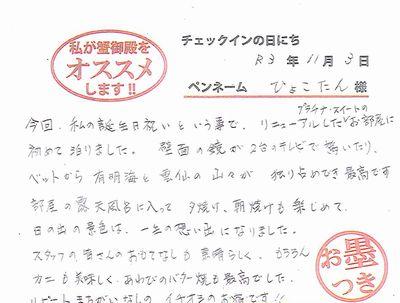 私が蟹御殿を
オススメ
します!!
チェックインの日にち
R3年11月3日
ペンネーム ぴょこたん 様
プラチナ・スイートの
今回、私の誕生日祝いという事で、リニューアルしたお部屋に
初めて泊りました。壁面の鏡が2台のテレビで驚いたり、
ベットから有明海と雲仙の山々が独り占めでき最高です
部屋の露天風呂に入って夕焼け、朝焼けも楽しめて、
日の出の景色は、一生の想い出になりました。
スタッフの皆さんのおもてなしも素晴らしく、もちろん
カニも美味しく、あわびのバター焼も最高でした。
リピートまちがいなしのイチオシのお宿です!!
お墨
つき